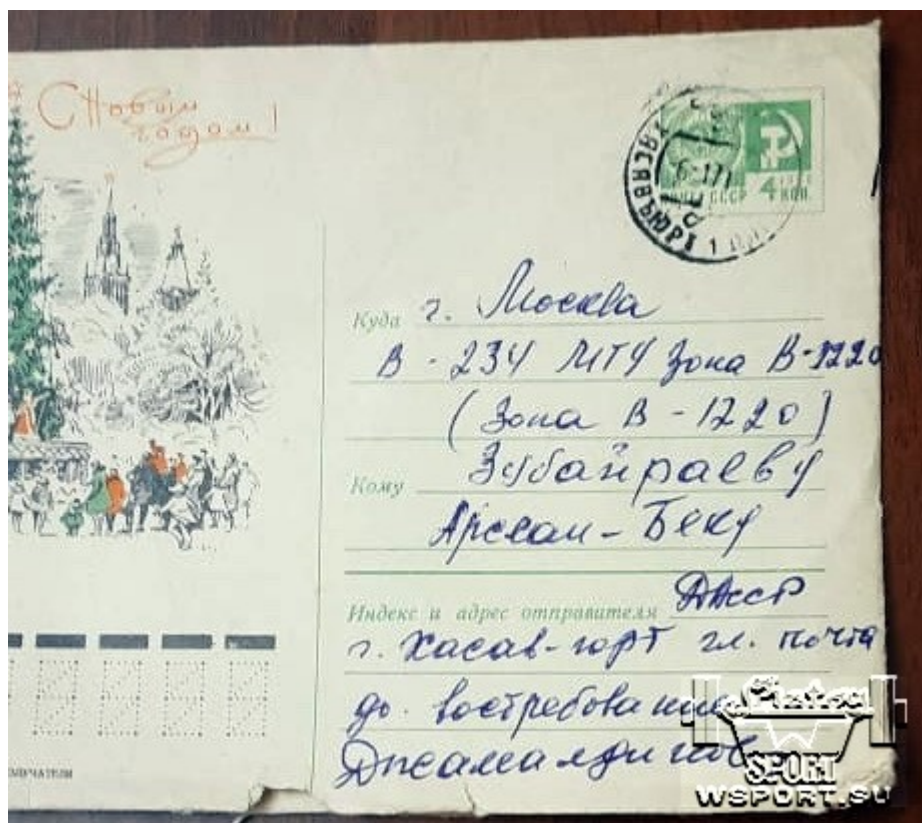 С Новым
годом!
ХАСАВЪЮРТ
СССР
4
КОП
Куда г. Москва
В-234 МГУ Зона В-1220
(Зона В-1220)
Кому Зубайраеву
Арслан-Беку
Индекс и адрес отправителя ДАССР
г. Хасав-юрт гл. почта
до. востребование
Джамалдинов
SPORT
WSPORT.SU